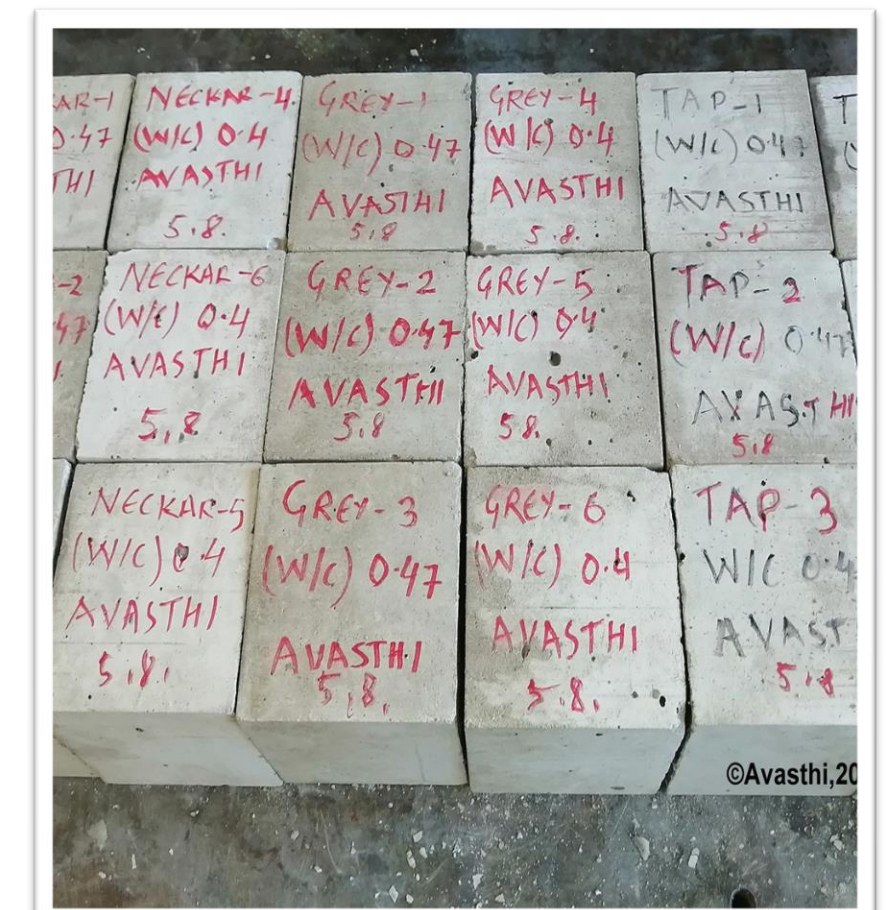 AR-1
0.47
THI
NECKAR-4.
(W/C) 0.4
AVASTHI
5.8.
GREY-1
(W/C) 0.47
AVASTHI
5.8
GREY-4
(W/C) 0.4
AVASTHI
5.8.
TAP-1
(W/C) 0.47
AVASTHI
5.8
T
(
-2
47
NECKAR-6
(W/C) 0.4
AVASTHI
5.8
GREY-2
(W/C) 0.47
AVASTHI
5.8
GREY-5
(W/C) 0.4
AVASTHI
5.8.
TAP-2
(W/C) 0.47
AVASTHI
5.8
NECKAR-5
(W/C) 0.4
AVASTHI
5.8.
GREY-3
(W/C) 0.47
AVASTHI
5.8.
GREY-6
(W/C) 0.4
AVASTHI
5.8.
TAP-3
W/C 0.4
AVAST
5.8
©Avasthi,20